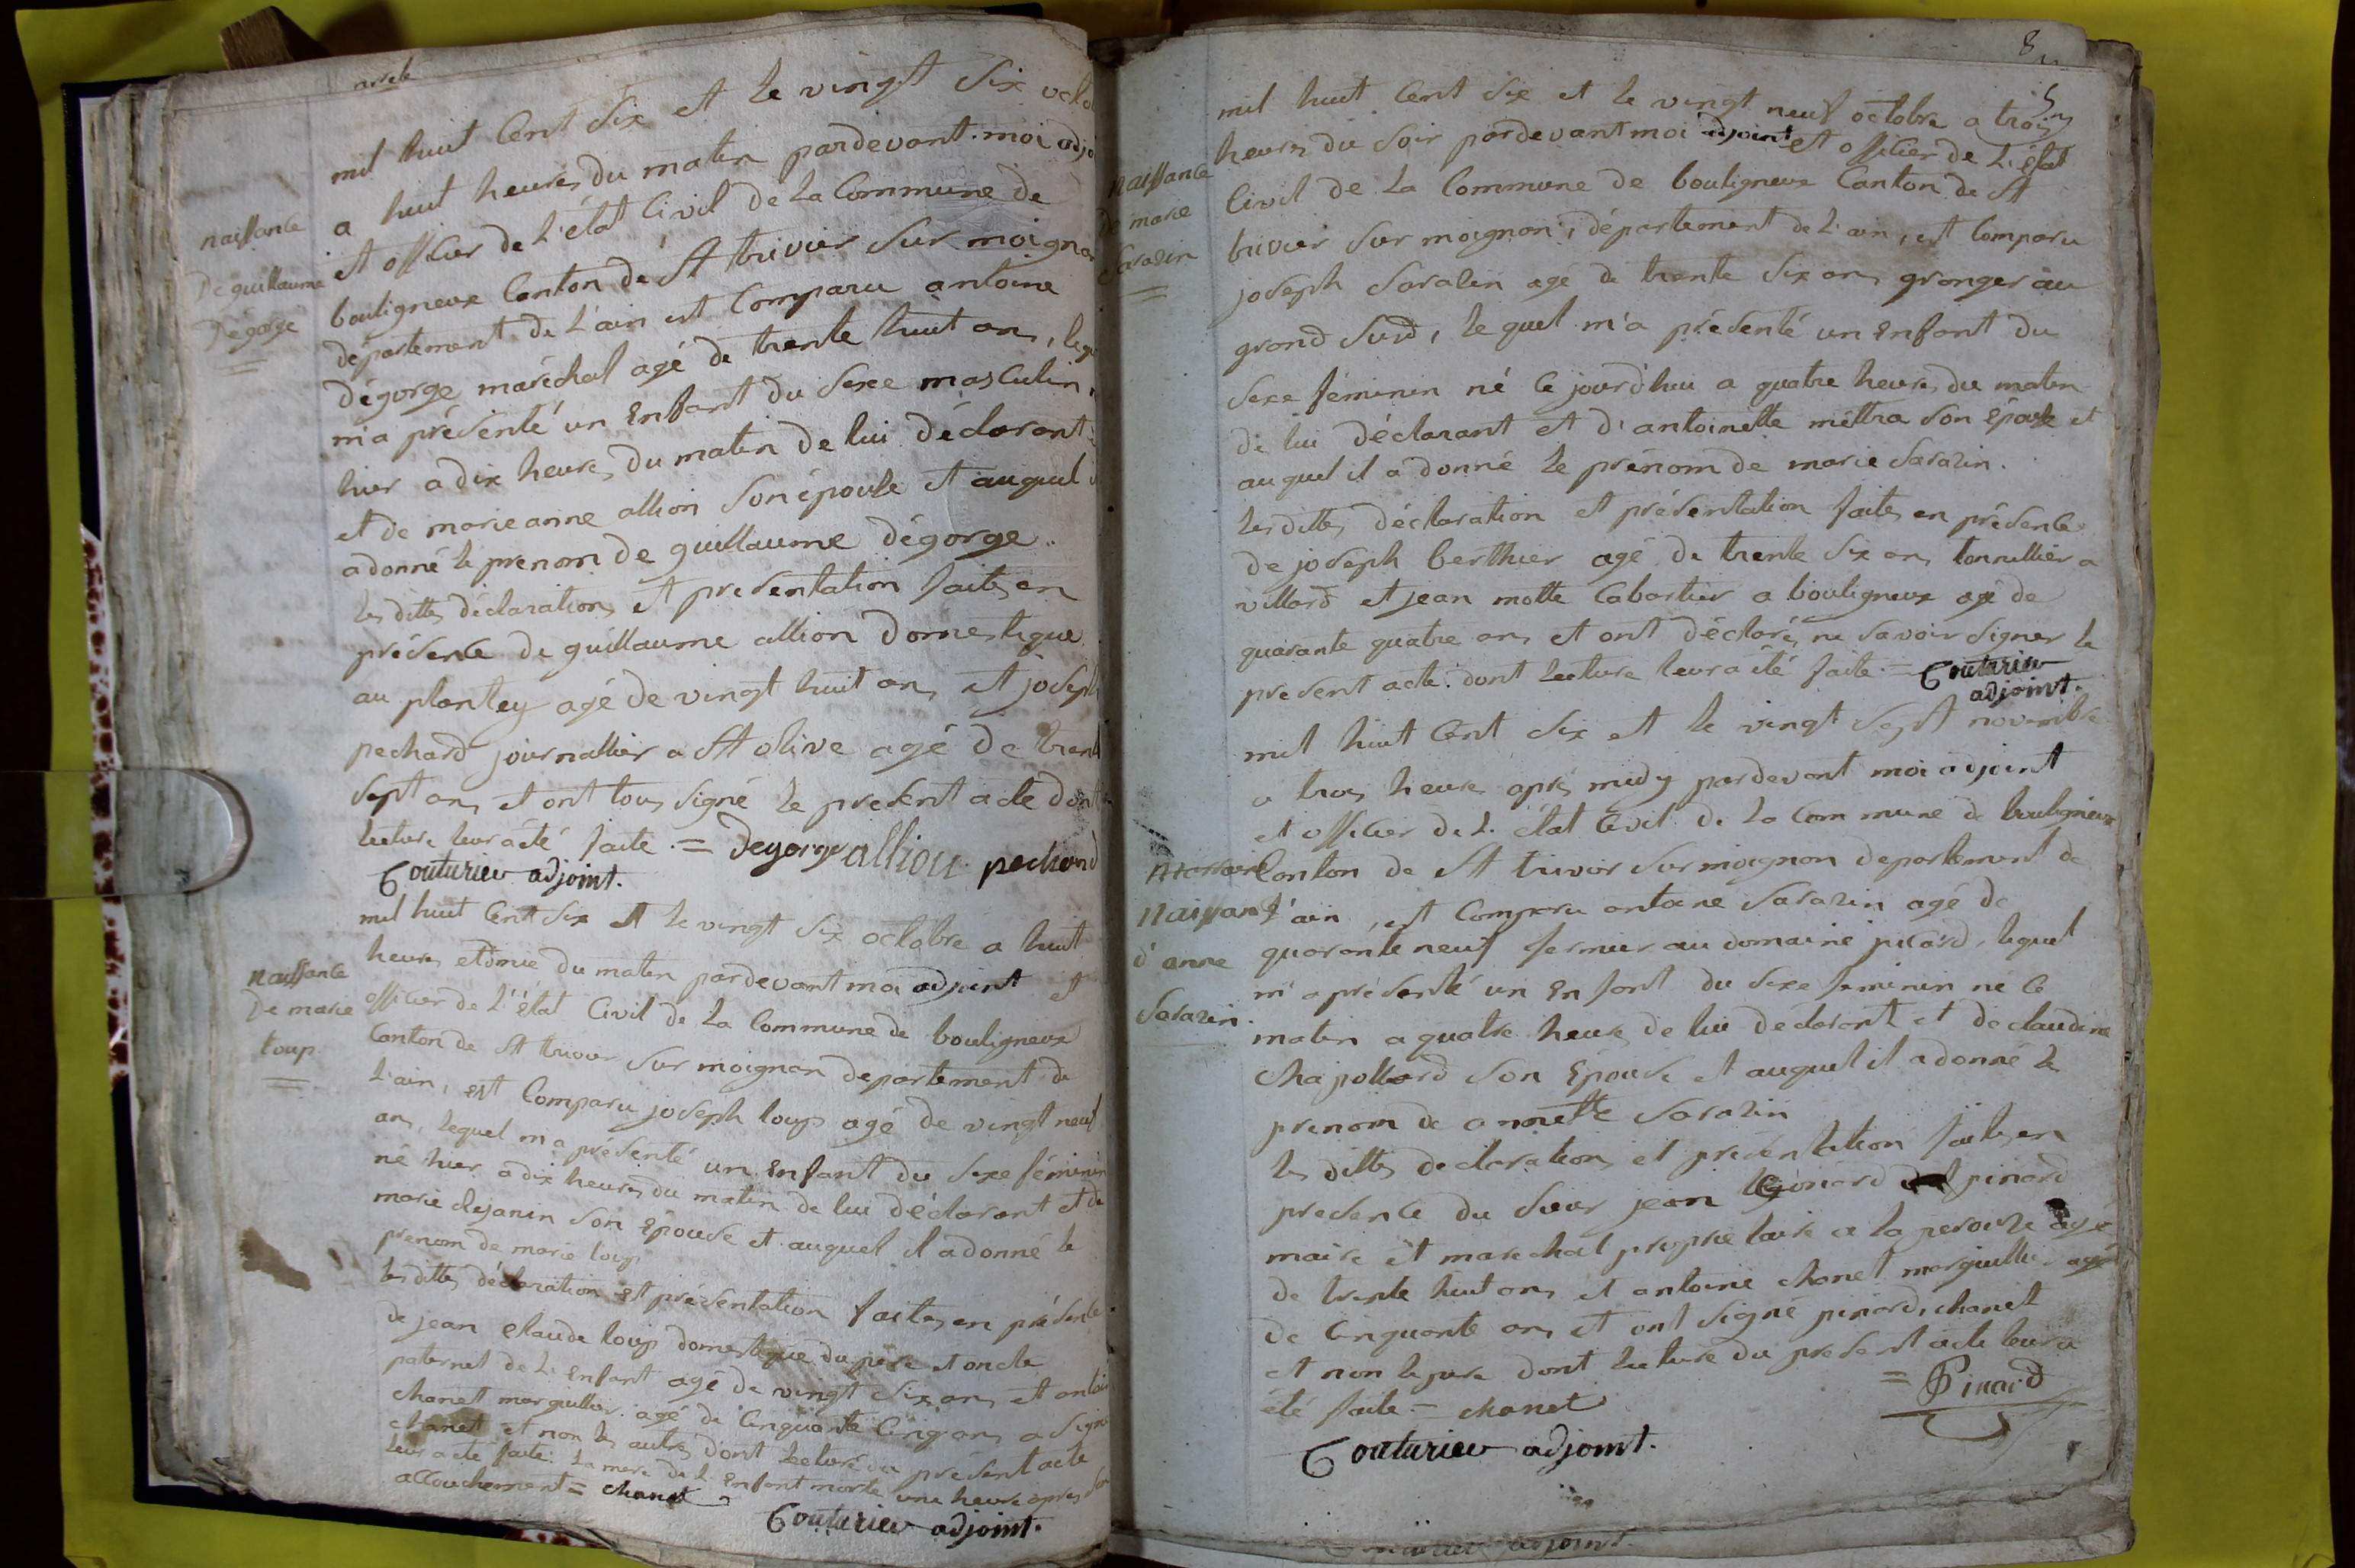 mil huit Cent Six et le vingt Six
a huit heures du matin pardevant moi
naissance
et officier de l'état Civil de la Commune de
De guillaume
bouligneux Canton de St trivier Sur
Dégorge
département de l'ain est Comparu antoine
Dégorge maréchal agé de trente huit ans,
m'a présenté un Enfant du Sexe masculin
hier a dix heures du matin de lui déclarant
et de marie anne allion Son épouse et auquel
a donné le prenom de guillaume Dégorge
les dittes déclarations et presentation faites en
présence de guillaume allion Domestique
au plantey agé de vingt huit ans et joseph
pechard journallier a St olive agé de
Sept ans et ont tous signé le present acte
lecture leur a été faite = Degorge alliou pechard
Couturier adjoint.
mil huit Cent Six et le vingt Six octobre a huit
naissance
heures et dmie du matin pardevant moi adjoint et
De marie
officier de l'état Civil de la Commune de bouligneux
loup
Canton de St trivier Sur moignan departement de
l'ain, est Comparu joseph loup agé de vingt neuf
ans, lequel m'a présenté un Enfant du Sexe féminin
né hier a dix heures du matin de lui déclarant et de
marie dejanin Son Epouse et auquel il a donné le
prenom de marie loup
les dittes déclaration et présentation faites en présence
de jean Claude loup domestique du père et oncle
paternel de l'Enfant agé de vingt Six ans et
chanet marguillier agé de Cinquante Cinq ans a Signé
chanet et non les autres dont lecture du présent acte
leur a été faite. la mere de l'Enfant morte une heure apres
accouchement = chanet
Couturier adjoint.
8
mil huit Cent Six et le vingt neuf octobre a trois
heures du Soir pardevant moi adjoint et officier de l'état
naissance
Civil de la Commune de bouligneux Canton de St
De marie
trivier Sur moignan, département de l'ain, est Comparu
Sarazin
joseph Sarazin agé de trente Six ans granger au
grand Sud, le quel m'a présenté un Enfant du
Sexe féminin né Ce jourd'hui a quatre heures du matin
de lui Déclarant et d'antoinette mettra Son Epouse et
auquel il a donné le prénom de marie Sarazin.
les dittes Déclaration et présentation faites en présence
de joseph berthier agé de trente Six ans tonnellier a
villard et jean motte Cabartier a bouligneux agé de
quarante quatre ans et ont Déclarés ne Savoir Signer le
present acte. dont lecture leur a été faite = Couturier
adjoint.
mil huit Cent Six et le vingt Sept novembre
a trois heures après midy pardevant moi adjoint
et officier de l'état Civil de la Commune de bouligneux
Canton de St trivier Sur moignan departement de
naissance
l'ain, est Comparu antoine Sarazin agé de
d'anne
quarante neuf fermier au domaine picard, lequel
m'a présenté un Enfant du Sexe feminin né Ce
Sarazin
matin a quatre heures de lui déclarant et de claudine
Chapollard Son Epouse et auquel il a donné le
prenom de annette Sarazin
les dittes declarations et presentation faites en
presence du Sieur jean pinard
maire et marechal propriétaire a la perouze agé
de trente huit ans et antoine chanet marguillier agé
de Cinquante ans et ont Signé pinard, chanet
et non le pere dont lecture du present acte leur a
été faite = chanet = Pinard
Couturier adjoint.